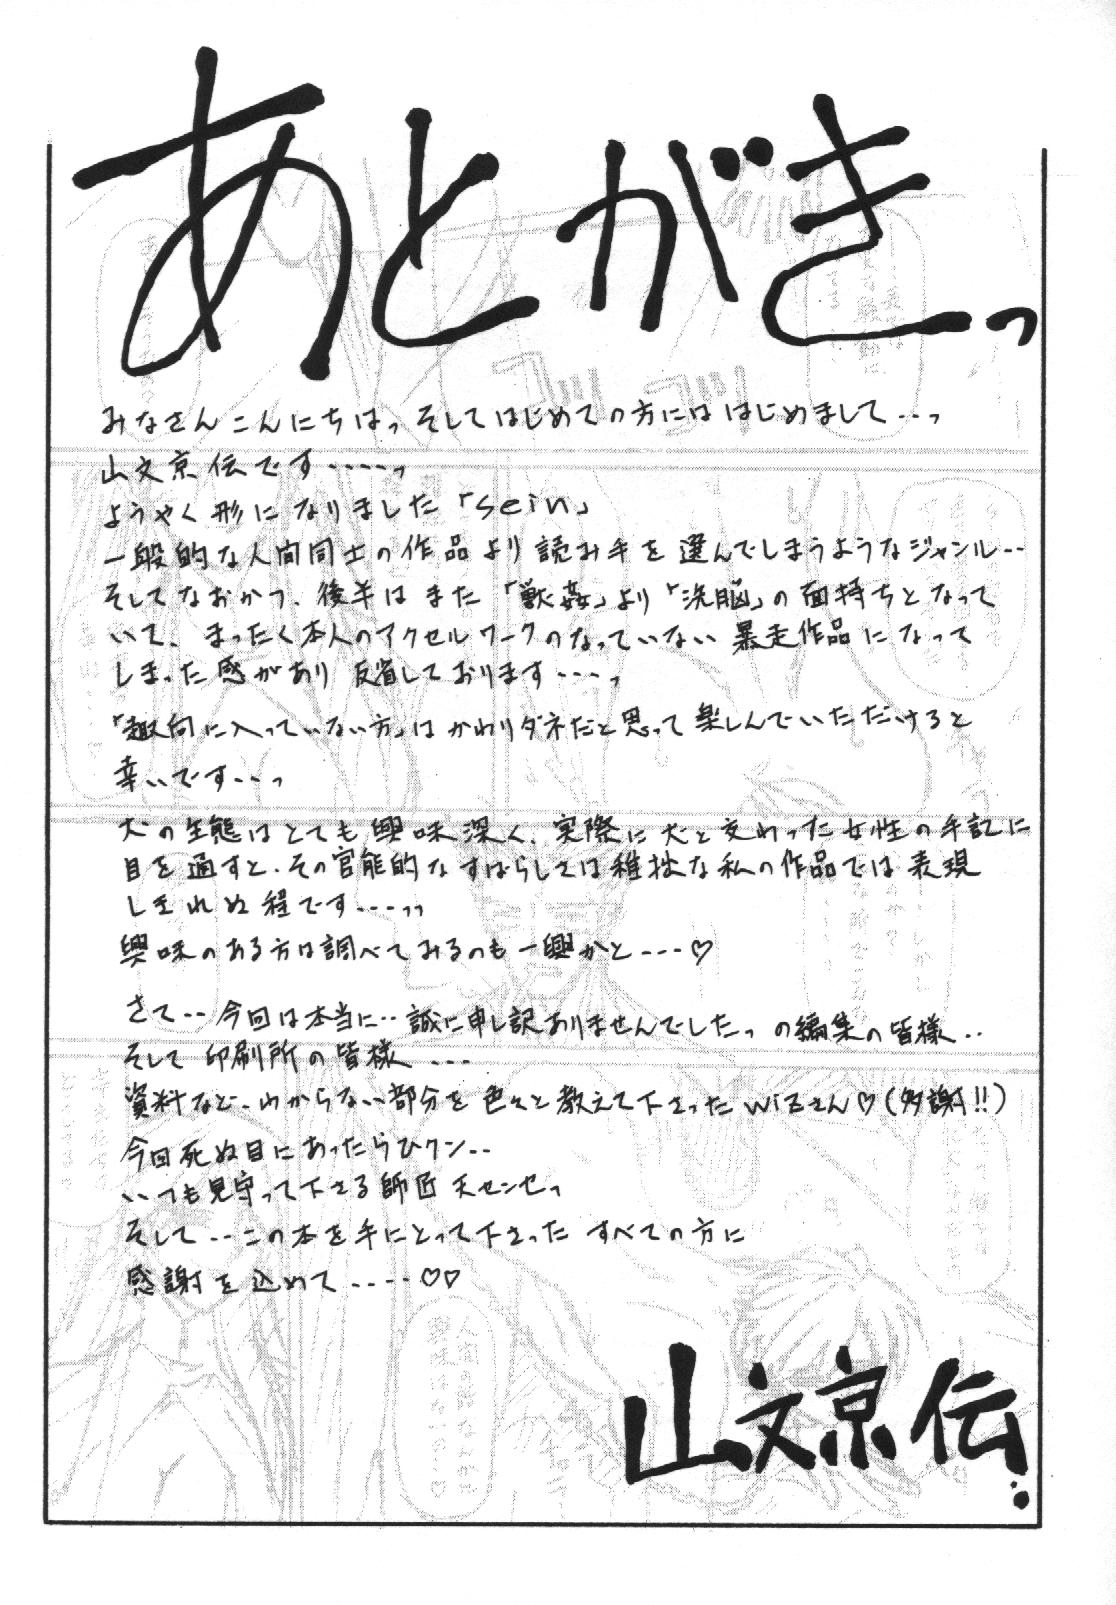 あとがきっ
みなさんこんにちはっ そしてはじめての方には はじめまして…っ
山文京伝です‥‥っ
ようやく形になりました「sein」
一般的な人間同士の作品より読み手を選んでしまうようなジャンル‥
そしてなおかつ、後半はまた「獣姦」より「洗脳」の面持ちとなって
いて、まったく本人のアクセルワークのなっていない暴走作品になって
しまった感があり 反省しております‥‥っ
「趣向に入っていない方」はかわりダネだと思って楽しんでいただけると
幸いです‥‥っ
犬の生態はとても興味深く、実際に犬と交わった女性の手記に
目を通すと、その官能的なすばらしさは稚拙な私の作品では表現
しきれぬ程です‥‥っっ
興味のある方は調べてみるのも一興かと‥‥♡
さて‥今回は本当に‥誠に申し訳ありませんでしたっ の編集の皆様‥
そして印刷所の皆様‥‥
資料など、わからない部分を色々と教えて下さったwizさん♡(多謝!!)
今回死ぬ目にあったらひクン‥
いつも見守って下さる師匠 天センセっ
そして‥この本を手にとって下さった すべての方に
感謝を込めて‥‥♡♡
山文京伝